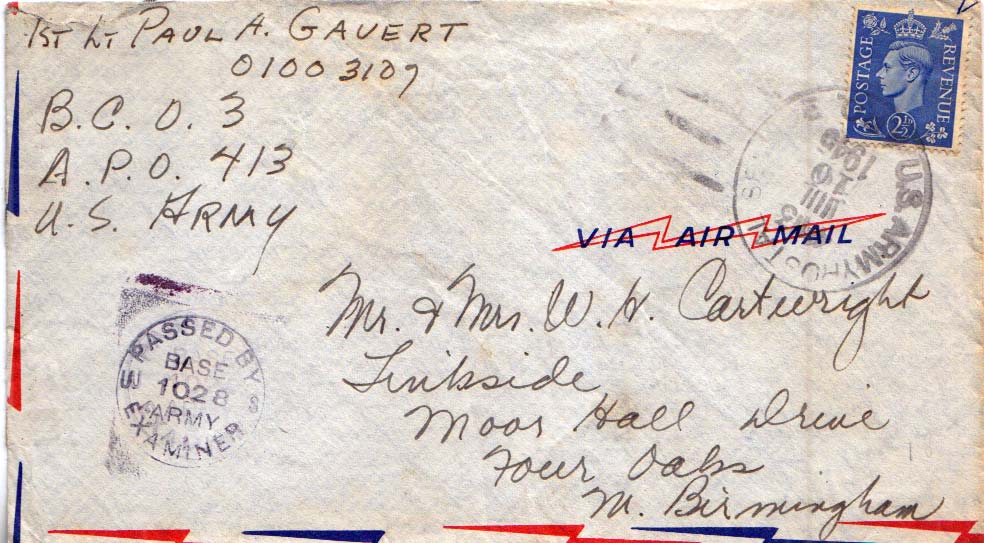 1ST LT PAUL A. GAVERT
01003109
B.C.O. 3
A.P.O. 413
U.S. ARMY
POSTAGE REVENUE
2½D
U.S. ARMY POSTAL SE
10
1945
VIA AIR MAIL
PASSED BY
BASE
1028
ARMY
EXAMINER
Mr. & Mrs. W. H. Cartwright
Linkside
Moor Hall Drive
Four Oaks
Birmingham